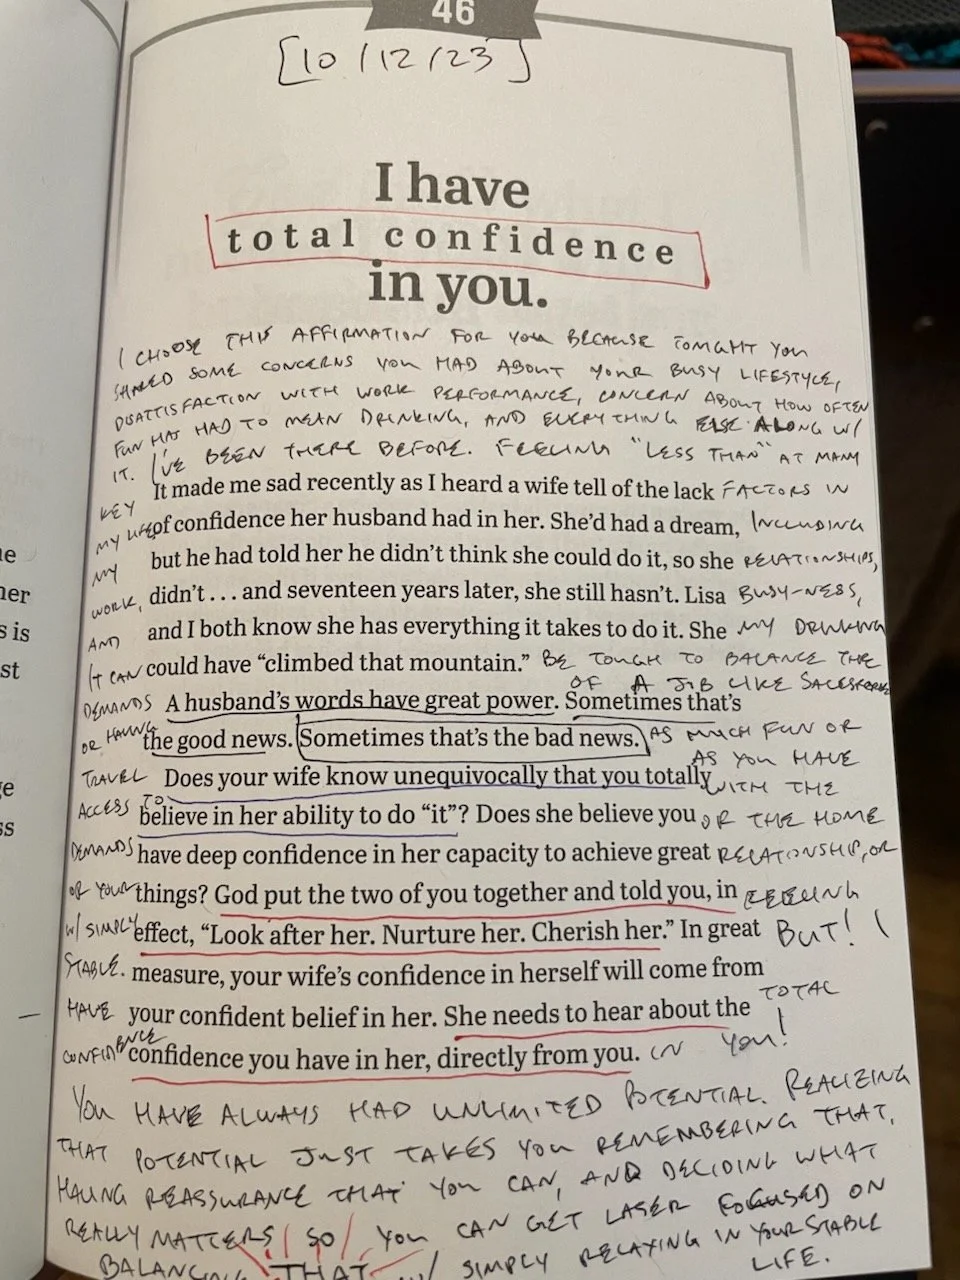 46
[10/12/23]
I have
total confidence
in you.
I CHOOSE THIS AFFIRMATION FOR YOU BECAUSE TONIGHT YOU
SHARED SOME CONCERNS YOU HAD ABOUT YOUR BUSY LIFESTYLE,
DISATTISFACTION WITH WORK PERFORMANCE, CONCERN ABOUT HOW OFTEN
FUN HAS HAD TO MEAN DRINKING, AND EVERYTHING ELSE ALONG W/
IT. I'VE BEEN THERE BEFORE. FEELING "LESS THAN" AT MANY
KEY It made me sad recently as I heard a wife tell of the lack FACTORS IN
MY LIFE of confidence her husband had in her. She'd had a dream, INCLUDING
MY but he had told her he didn't think she could do it, so she RELATIONSHIPS,
WORK, didn't . . . and seventeen years later, she still hasn't. Lisa BUSY-NESS,
AND and I both know she has everything it takes to do it. She MY DRINKING
IT CAN could have "climbed that mountain." BE TOUGH TO BALANCE THE
OF A JOB LIKE SALESFORCE
DEMANDS A husband's words have great power. Sometimes that's
OR HAVING the good news. Sometimes that's the bad news. AS MUCH FUN OR
AS YOU HAVE
TRAVEL Does your wife know unequivocally that you totally WITH THE
ACCESS TO believe in her ability to do "it"? Does she believe you OR THE HOME
DEMANDS have deep confidence in her capacity to achieve great RELATIONSHIP, OR
OF YOUR things? God put the two of you together and told you, in FEELING
W/ SIMPLY effect, "Look after her. Nurture her. Cherish her." In great BUT! I
STABLE. measure, your wife's confidence in herself will come from
HAVE your confident belief in her. She needs to hear about the TOTAL
CONFIDENCE confidence you have in her, directly from you. IN YOU!
YOU HAVE ALWAYS HAD UNLIMITED POTENTIAL. REALIZING
THAT POTENTIAL JUST TAKES YOU REMEMBERING THAT,
HAVING REASSURANCE THAT YOU CAN, AND DECIDING WHAT
REALLY MATTERS SO YOU CAN GET LASER FOCUSED ON
BALANCING THAT W/ SIMPLY RELAXING IN YOUR STABLE
LIFE.
ne
her
s is
st
ge
ss